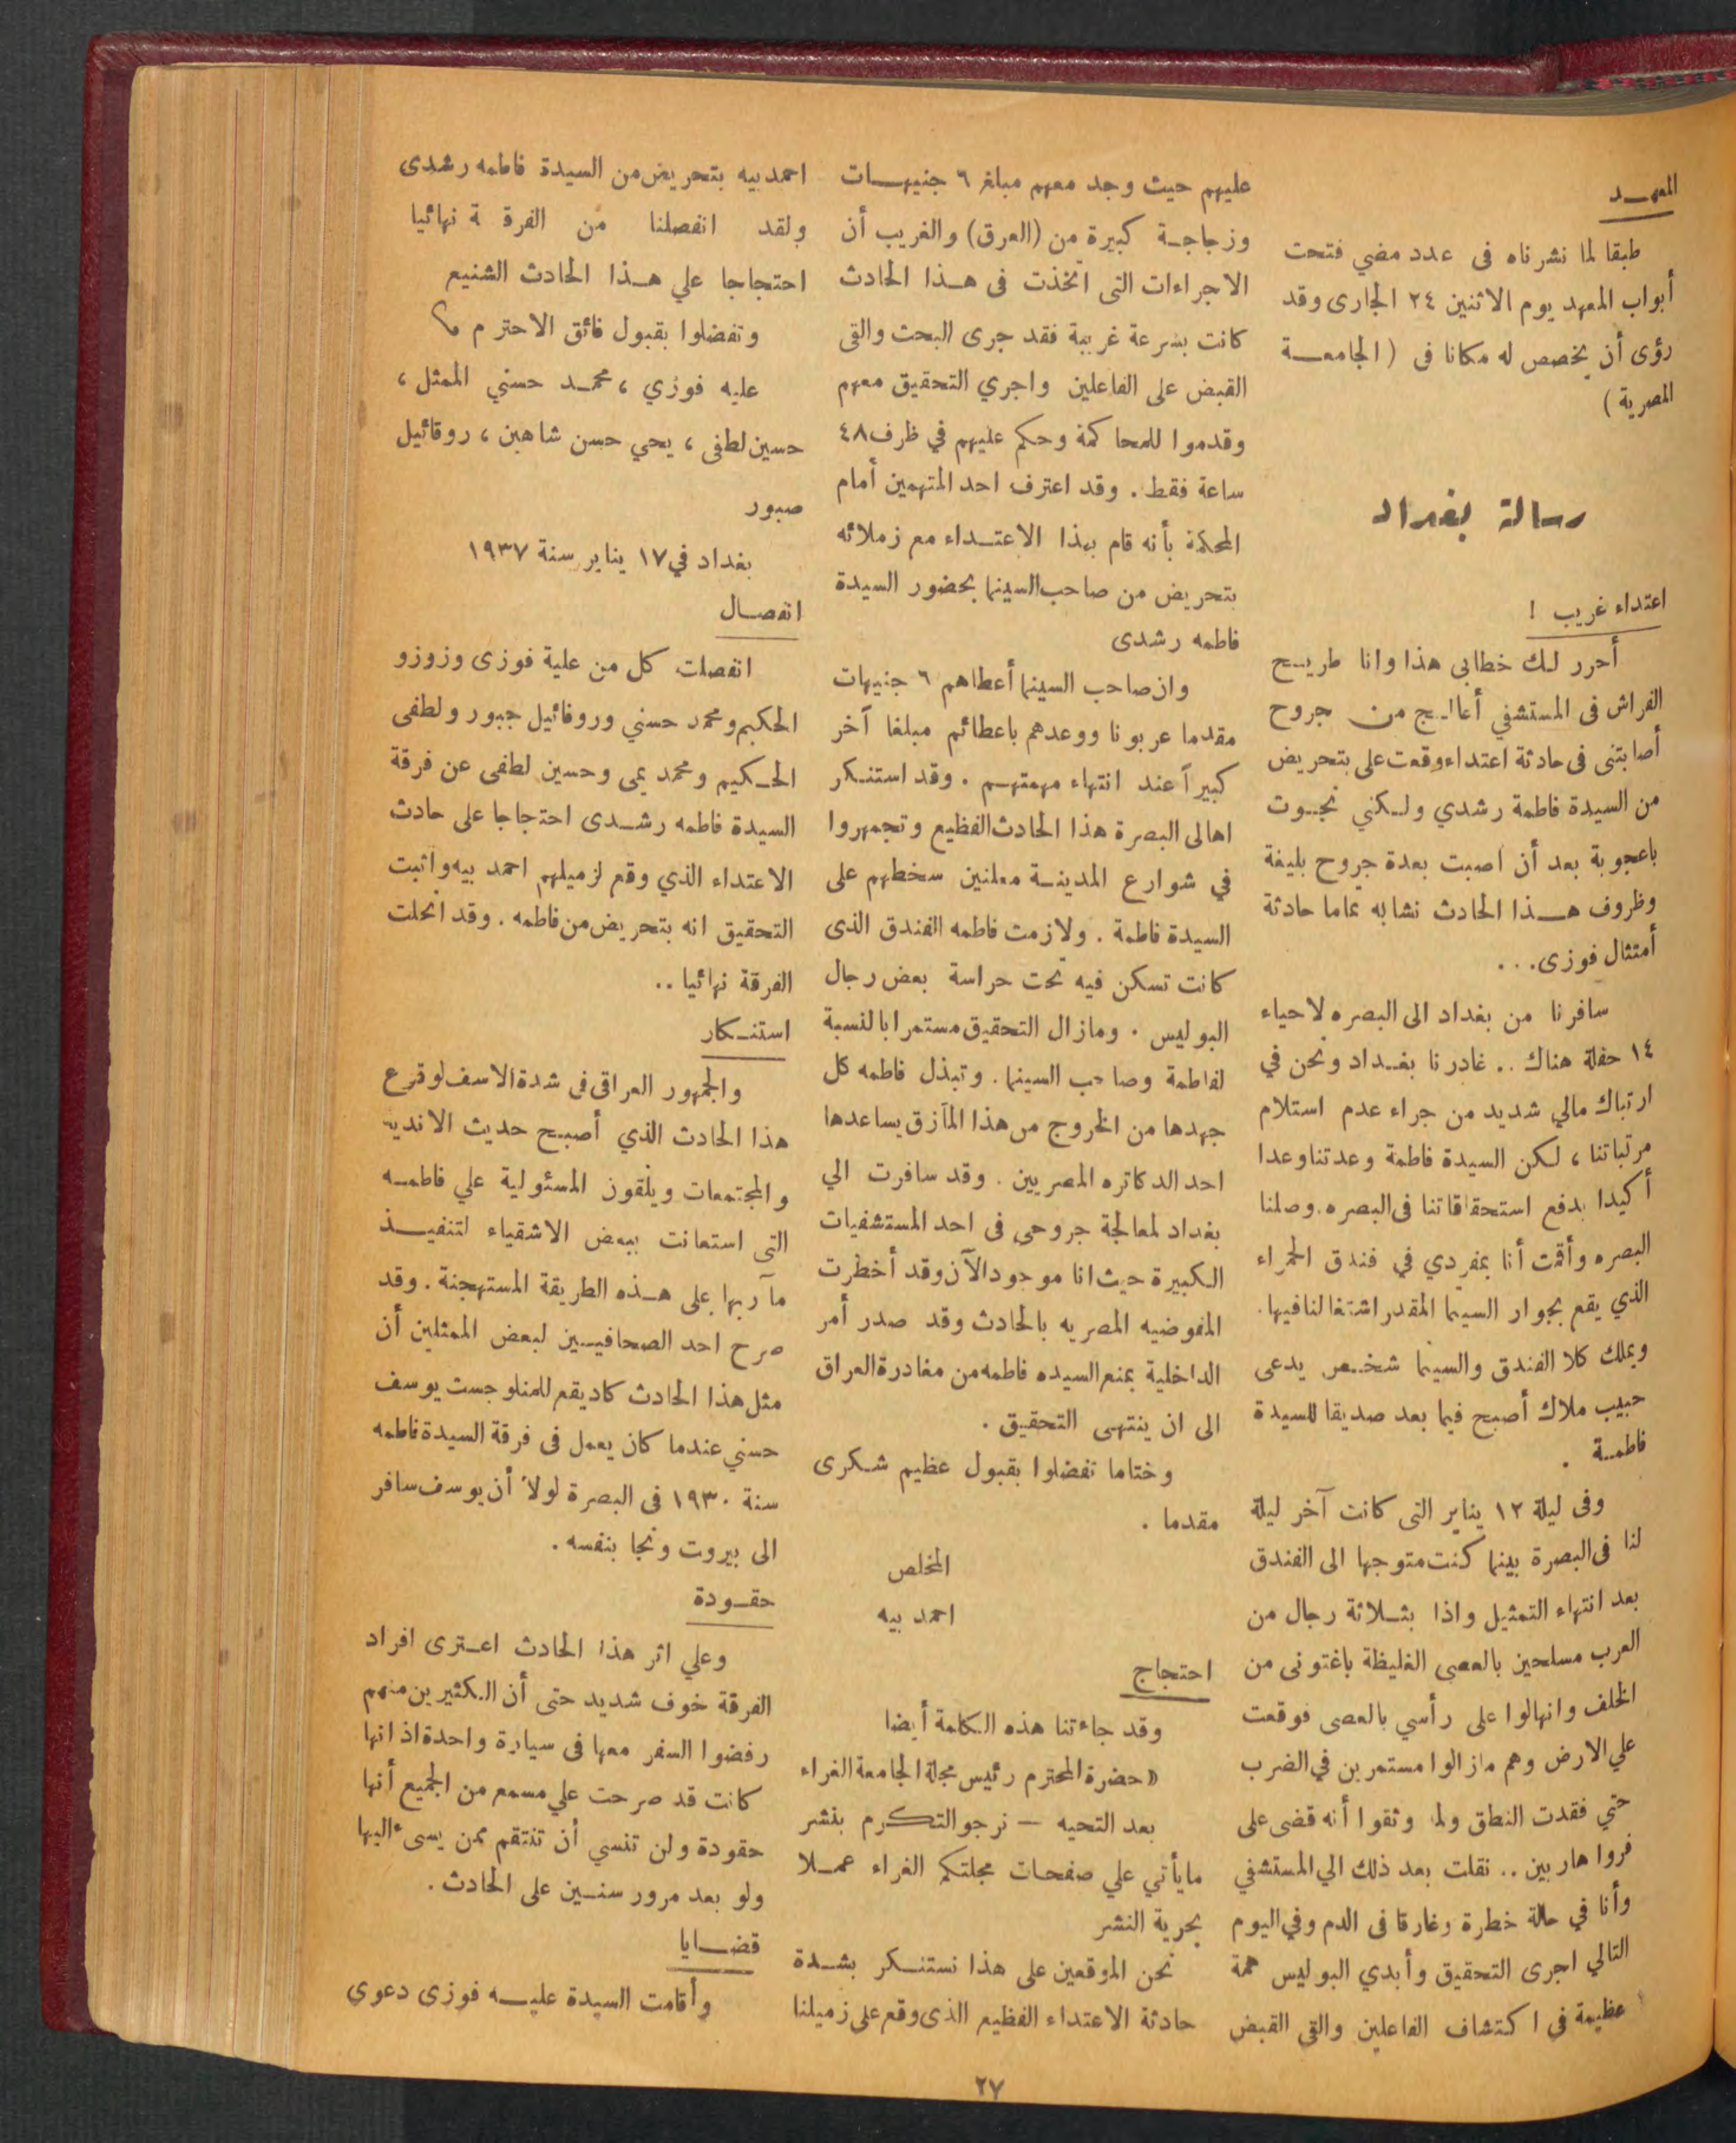 المعهد
طبقا لما نشرناه فى عدد مضي فتحت
أبواب المعهد يوم الاثنين ٢٤ الجارى وقد
رؤى أن يخصص له مكانا فى ( الجامعة
المصرية )
رسالة بغداد
اعتداء غريب !
أحرر لك خطابى هذا وانا طريح
الفراش فى المستشفي أعالج من جروح
أصابتنى فى حادثة اعتداء وقعت على بتحريض
من السيدة فاطمة رشدي ولكني نجوت
باعجوبة بعد أن اصبت بعدة جروح بليغة
وظروف هذا الحادث تشابه تماما حادثة
أمتثال فوزى...
سافرنا من بغداد الى البصره لاحياء
١٤ حفلة هناك .. غادرنا بغداد ونحن في
ارتباك مالي شديد من جراء عدم استلام
مرتباتنا ، لكن السيدة فاطمة وعدتنا وعدا
أكيدا بدفع استحقاقاتنا فى البصره. وصلنا
البصره وأقمت أنا بمفردي في فندق الحمراء
الذي يقع بجوار السينما المقدر اشتغالنا فيها.
ويملك كلا الفندق والسينما شخص يدعى
حبيب ملاك أصبح فيما بعد صديقا للسيدة
فاطمة .
وفى ليلة ١٢ يناير التى كانت آخر ليلة
لنا فى البصرة بينما كنت متوجها الى الفندق
بعد انتهاء التمثيل واذا بثلاثة رجال من
العرب مسلحين بالعصى الغليظة باغتونى من
الخلف وانهالوا على رأسي بالعصى فوقعت
علي الارض وهم مازالوا مستمرين في الضرب
حتي فقدت النطق ولما وثقوا أنه قضى على
فروا هاربين .. نقلت بعد ذلك الي المستشفي
وأنا في حالة خطرة وغارقا فى الدم وفي اليوم
التالي اجرى التحقيق وأبدي البوليس همة
عظيمة في اكتشاف الفاعلين والقي القبض
عليهم حيث وجد معهم مبلغ ٦ جنيهات
وزجاجة كبيرة من (العرق) والغريب أن
الاجراءات التى اتخذت فى هذا الحادث
كانت بسرعة غريبة فقد جرى البحث والقى
القبض على الفاعلين واجري التحقيق معهم
وقدموا للمحاكمة وحكم عليهم في ظرف ٤٨
ساعة فقط . وقد اعترف احد المتهمين أمام
المحكمة بأنه قام بهذا الاعتداء مع زملائه
بتحريض من صاحب السينما بحضور السيدة
فاطمه رشدى
وان صاحب السينما أعطاهم ٦ جنيهات
مقدما عربونا ووعدهم باعطائهم مبلغا آخر
كبيراً عند انتهاء مهمتهم . وقد استنكر
اهالى البصرة هذا الحادث الفظيع وتجمهروا
في شوارع المدينة معلنين سخطهم على
السيدة فاطمة . ولازمت فاطمه الفندق الذى
كانت تسكن فيه تحت حراسة بعض رجال
البوليس . ومازال التحقيق مستمرا بالنسبة
لفاطمة وصاحب السينما . وتبذل فاطمه كل
جهدها من الخروج من هذا المآزق يساعدها
احد الدكاتره المصريين . وقد سافرت الي
بغداد لمعالجة جروحى فى احد المستشفيات
الكبيرة حيث انا موجود الآن وقد أخطرت
المفوضيه المصريه بالحادث وقد صدر أمر
الداخلية بمنع السيده فاطمه من مغادرة العراق
الى ان ينتهى التحقيق .
وختاما تفضلوا بقبول عظيم شكرى
مقدما .
المخلص
احمد بيه
احتجاج
وقد جاءتنا هذه الكلمة أيضا
« حضرة المحترم رئيس مجلة الجامعة الغراء
بعد التحيه — نرجو التكرم بنشر
مايأتي علي صفحات مجلتكم الغراء عملا
بحرية النشر
نحن الموقعين على هذا نستنكر بشدة
حادثة الاعتداء الفظيع الذى وقع على زميلنا
احمد بيه بتحريض من السيدة فاطمه رشدى
ولقد انفصلنا من الفرقة نهائيا
احتجاجا علي هذا الحادث الشنيع
وتفضلوا بقبول فائق الاحترام
عليه فوزي ، محمد حسني الممثل ،
حسين لطفى ، يحي حسن شاهين ، روفائيل
صبور
بغداد في ١٧ يناير سنة ١٩٣٧
انفصال
انفصلت كل من علية فوزى وزوزو
الحكيم ومحمد حسني وروفائيل جبور ولطفى
الحكيم ومحمد يمى وحسين لطفى عن فرقة
السيدة فاطمه رشدى احتجاجا على حادث
الاعتداء الذي وقع لزميلهم احمد بيه واثبت
التحقيق انه بتحريض من فاطمه . وقد انحلت
الفرقة نهائيا ..
استنكار
والجمهور العراقى فى شدة الاسف لوقوع
هذا الحادث الذي أصبح حديث الاندية
والمجتمعات ويلقون المسئولية علي فاطمه
التي استعانت ببعض الاشقياء لتنفيذ
مآربها على هذه الطريقة المستهجنة . وقد
صرح احد الصحافيين لبعض الممثلين أن
مثل هذا الحادث كاد يقع للمنلوجست يوسف
حسني عندما كان يعمل فى فرقة السيدة فاطمه
سنة ١٩٣٠ فى البصرة لولا أن يوسف سافر
الى بيروت ونجا بنفسه .
حقودة
وعلي اثر هذا الحادث اعترى افراد
الفرقة خوف شديد حتى أن الكثيرين منهم
رفضوا السفر معها فى سيارة واحدة اذ انها
كانت قد صرحت علي مسمع من الجميع أنها
حقودة ولن تنسي أن تنتقم ممن يسىء اليها
ولو بعد مرور سنين على الحادث .
قضايا
وأقامت السيدة عليه فوزى دعوي
٢٧